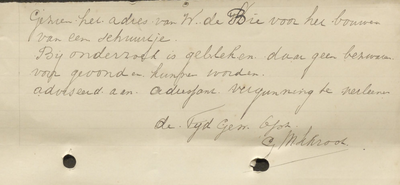 Gezien het adres van W. de Bie voor het bouwen
van een schuurtje.
Bij onderzoek is gebleken daar geen bezwaren
voor gevonden kunnen worden.
adviseerd aan adressant vergunning te verleenen
de Tijd Gem. Opz.
C.